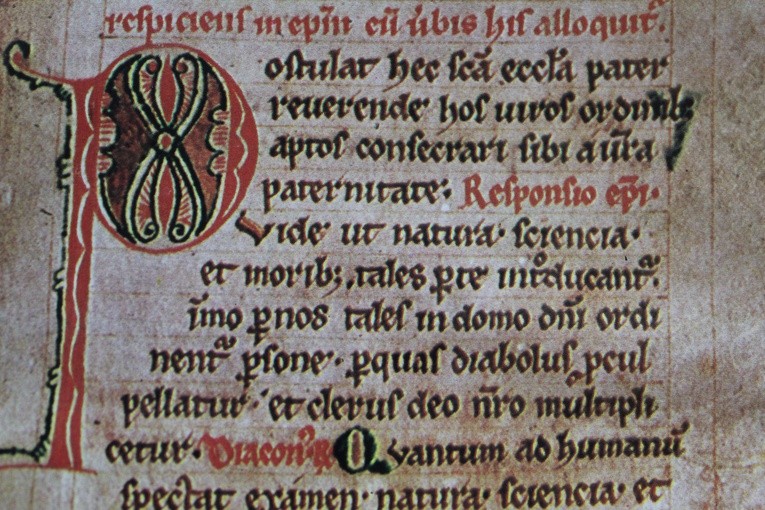 respiciens in ep̄m cū ūbis his alloquit᷑.
Postulat hec scā eccl̄a pater
reuerende hos uiros ordinib;
aptos consecrari sibi a ur̄a
paternitate. Responsio ep̄i.
Vide ut natura. sciencia.
et morib; tales ꝑ te introducant᷑.
im̄o ꝑ nos tales in domo dn̄i ordi
nent᷑ ꝑsone. ꝑ quas diabolus ꝓcul
pellatur. et clerus deo nr̄o multipli
cetur. Diacon᷒ R̄ Quantum ad humanū
spectat examen. natura. sciencia. et